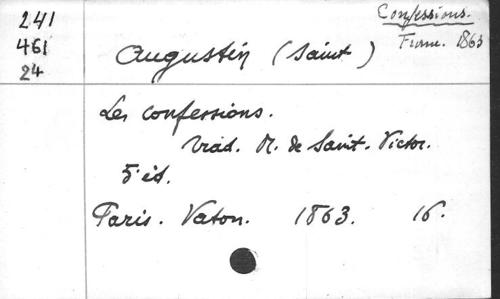 241
461
24
Confessions.
Franc. 1863
Augustin (Saint)
Les confessions.
trad. M. de Saint-Victor.
5 éd.
Paris. Vaton. 1863. 16.